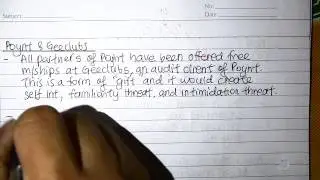 Subject:
No.:
Date:
Poynt & Geeclubs
- All partners of Poynt have been offered free
m/ships at Geeclubs, an audit client of Poynt.
This is a form of "gift" and it would create
self int, familiarity threat, and intimidation threat.